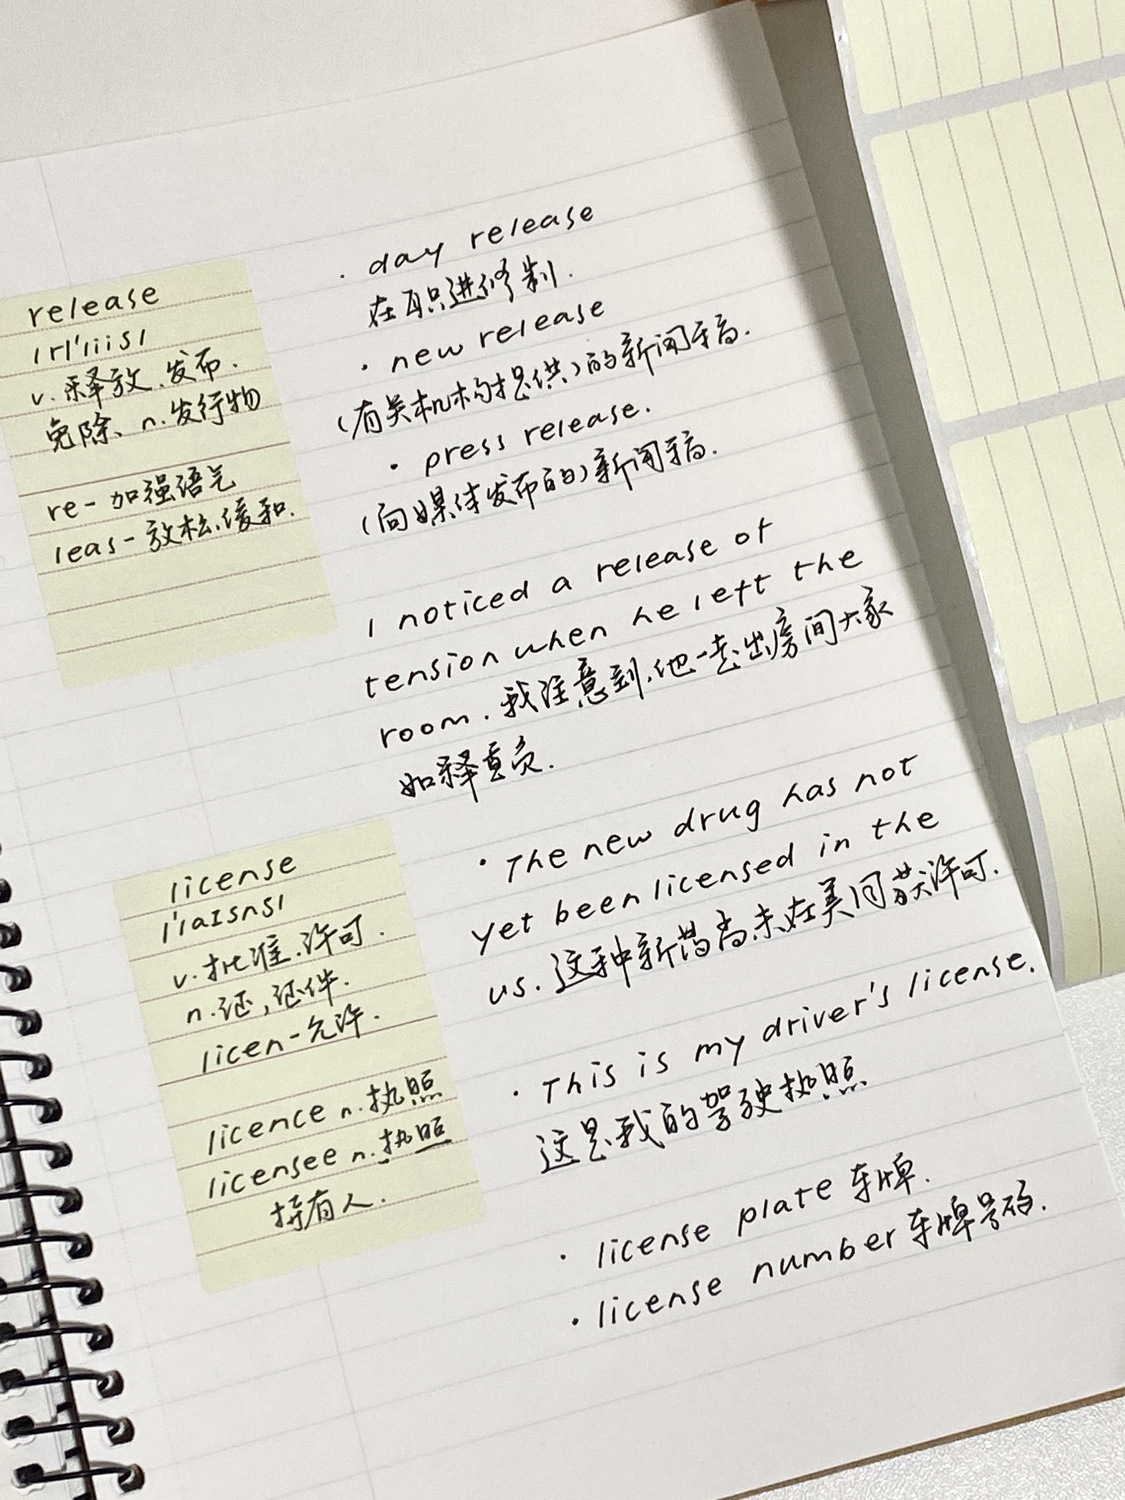 release
/rɪ'liːs/
v. 释放、发布、
免除、n. 发行物
re- 加强语气
leas- 放松、缓和.
· day release
在职进修制.
· new release
(有关机构提供)的新闻稿.
· press release.
(向媒体发布的)新闻稿.
I noticed a release of
tension when he left the
room. 我注意到,他一走出房间大家
如释重负.
license
/'laɪsns/
v. 批准、许可.
n. 证,证件.
licen- 允许.
licence n. 执照
licensee n. 执照
持有人.
· The new drug has not
yet been licensed in the
us. 这种新药尚未在美国获许可.
· This is my driver's license.
这是我的驾驶执照
· license plate 车牌.
· license number 车牌号码.